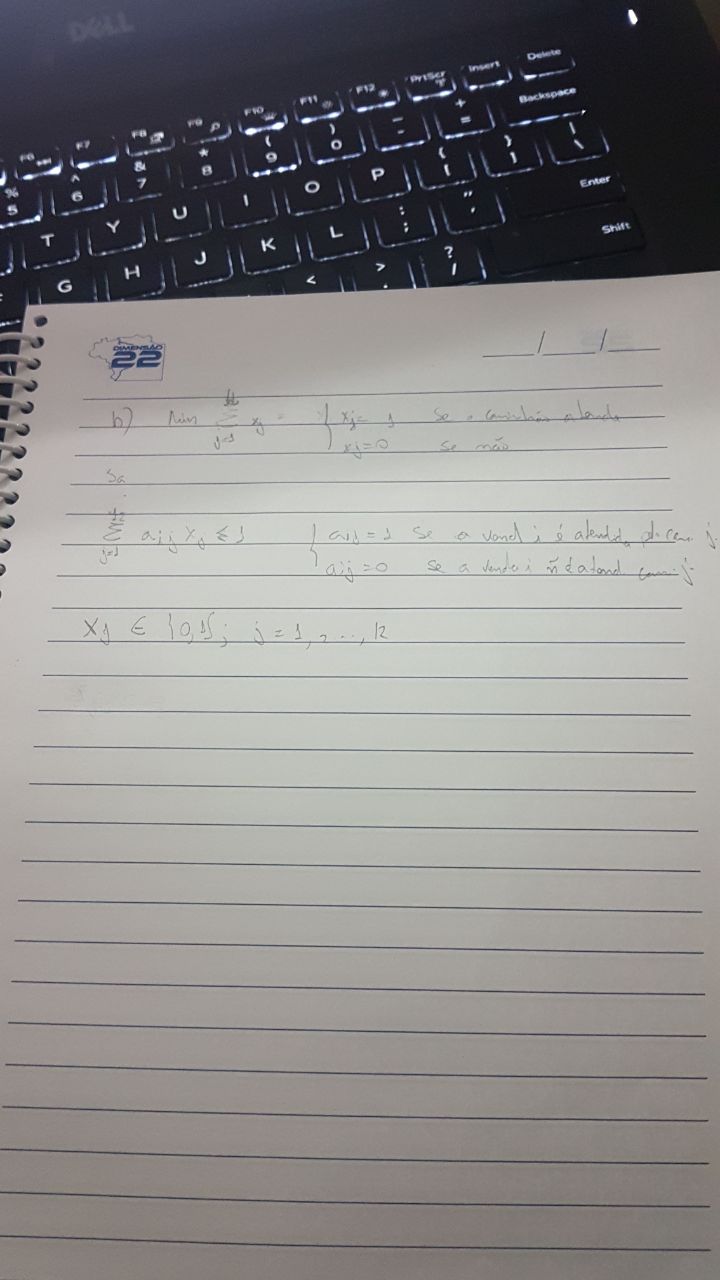 DELL
F6 F7 F8 F9 F10 F11 F12 PrtScr Insert Delete
% 5 ^ 6 & 7 * 8 ( 9 ) 0 _ - + = Backspace
T Y U I O P { [ } ] | \
G H J K L : ; " ' Enter
< , > . ? / Shift
DIMENSÃO
22
__/__/__
b) Min ∑ j=1 xj = { xj = 1 se o caminhão atende
xj = 0 se não
Sa
∑ j=1 12 aij xj ≤ 1 { aij = 1 se a vend i é atendida p. cam. j
aij = 0 se a vende i ñ é atend. cam j
xj ∈ {0,1}; j = 1, ..., 12